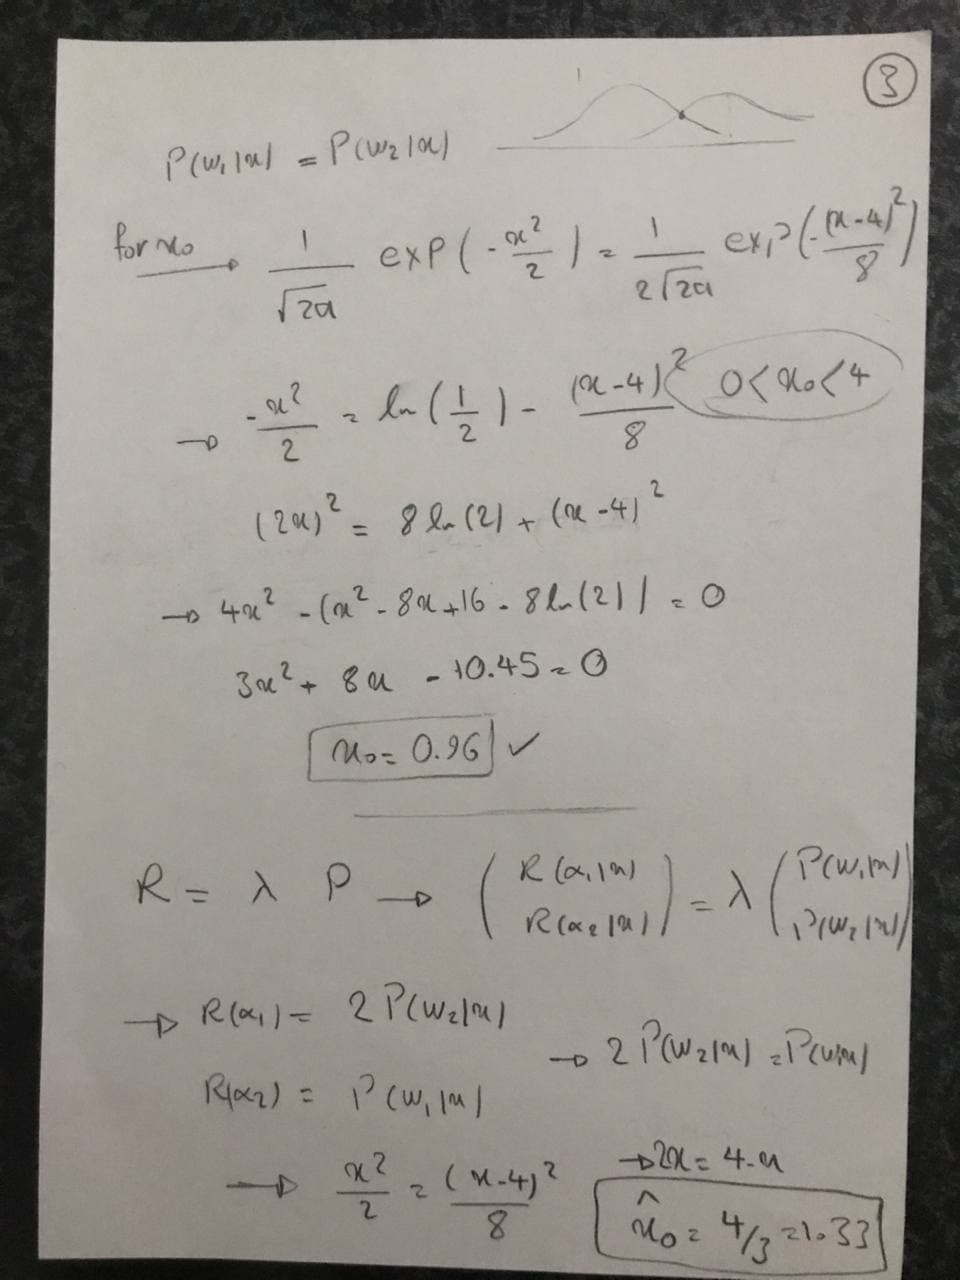 ③
P(w₁|x) = P(w₂|x)
for x₀ → 1/√2π exp(-x²/2) = 1/2√2π exp(-(x-4)²/8)
→ -x²/2 = ln(1/2) - (x-4)²/8 0<x₀<4
(2x)² = 8 ln(2) + (x-4)²
→ 4x² - (x² - 8x + 16 - 8 ln(2)) = 0
3x² + 8x - 10.45 = 0
x₀ = 0.96 ✓
R = λ P → (R(α₁|x) R(α₂|x)) = λ (P(w₁|x) P(w₂|x))
→ R(α₁) = 2 P(w₂|x)
R(α₂) = P(w₁|x)
→ 2 P(w₂|x) = P(w₁|x)
→ x²/2 = (x-4)²/8
→ 2x = 4-x
x̂₀ = 4/3 = 1.33